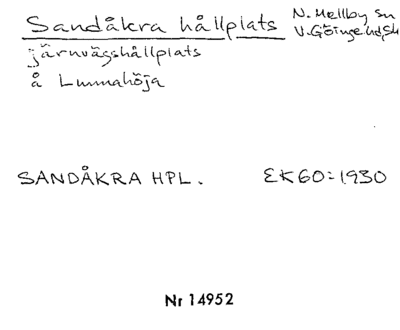 Sandåkra hållplats
N. Mellby sn
V. Göinge hd, Sk
järnvägshållplats
å Lummahöja
SANDÅKRA HPL. EK60:1930
Nr 14952